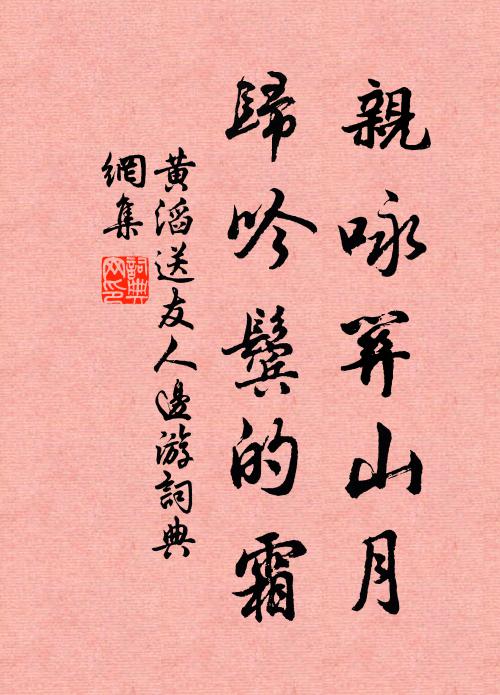 親咏關山月
歸吟鬢的霜
黃滔送友人邊游詞典
網集
詞典
网印